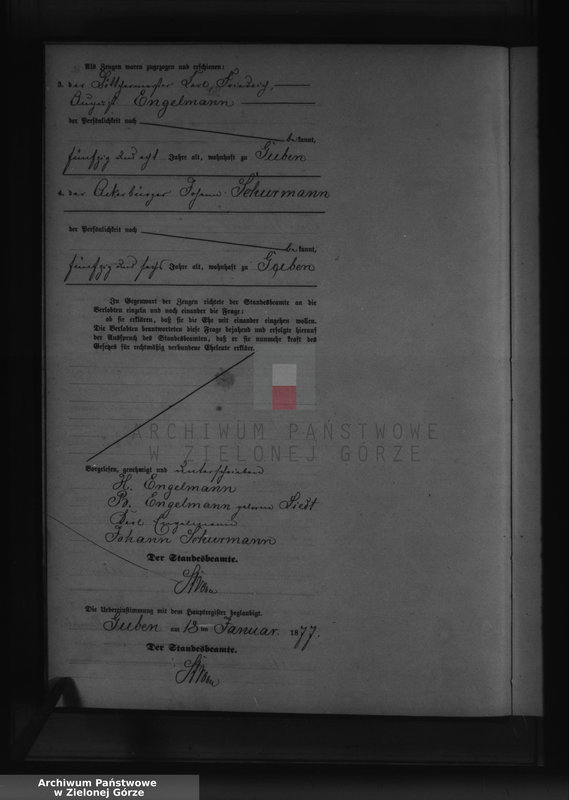 Als Zeugen waren zugezogen und erschienen:
3. der Böttchermeister Karl, Friedrich,
August Engelmann
der Persönlichkeit nach
be kannt,
fünfzig und acht Jahre alt, wohnhaft zu Guben
4. der Ackerbürger Johann Schurmann
der Persönlichkeit nach
be kannt,
fünfzig und sechs Jahre alt, wohnhaft zu Guben
In Gegenwart der Zeugen richtete der Standesbeamte an die
Verlobten einzeln und nach einander die Frage:
ob sie erklären, daß sie die Ehe mit einander eingehen wollen.
Die Verlobten beantworteten diese Frage bejahend und erfolgte hierauf
der Ausspruch des Standesbeamten, daß er sie nunmehr kraft des
Gesetzes für rechtmäßig verbundene Eheleute erkläre.
ARCHIWUM PAŃSTWOWE
W ZIELONEJ GÓRZE
Vorgelesen, genehmigt und unterschrieben
H. Engelmann
B. Engelmann geborne Siedt
Karl Engelmann
Johann Schurmann
Der Standesbeamte.
Die Uebereinstimmung mit dem Hauptregister beglaubigt.
Guben am 13 ten Januar. 1877.
Der Standesbeamte.
Archiwum Państwowe
w Zielonej Górze